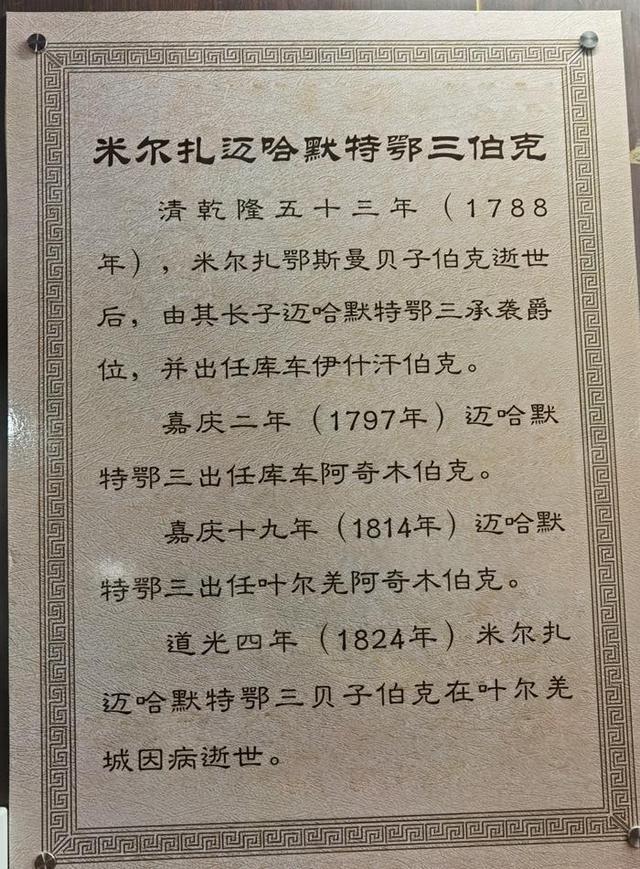 米尔扎迈哈默特鄂三伯克
清乾隆五十三年（1788
年），米尔扎鄂斯曼贝子伯克逝世
后，由其长子迈哈默特鄂三承袭爵
位，并出任库车伊什汗伯克。
嘉庆二年（1797年）迈哈默
特鄂三出任库车阿奇木伯克。
嘉庆十九年（1814年）迈哈默
特鄂三出任叶尔羌阿奇木伯克。
道光四年（1824年）米尔扎
迈哈默特鄂三贝子伯克在叶尔羌
城因病逝世。